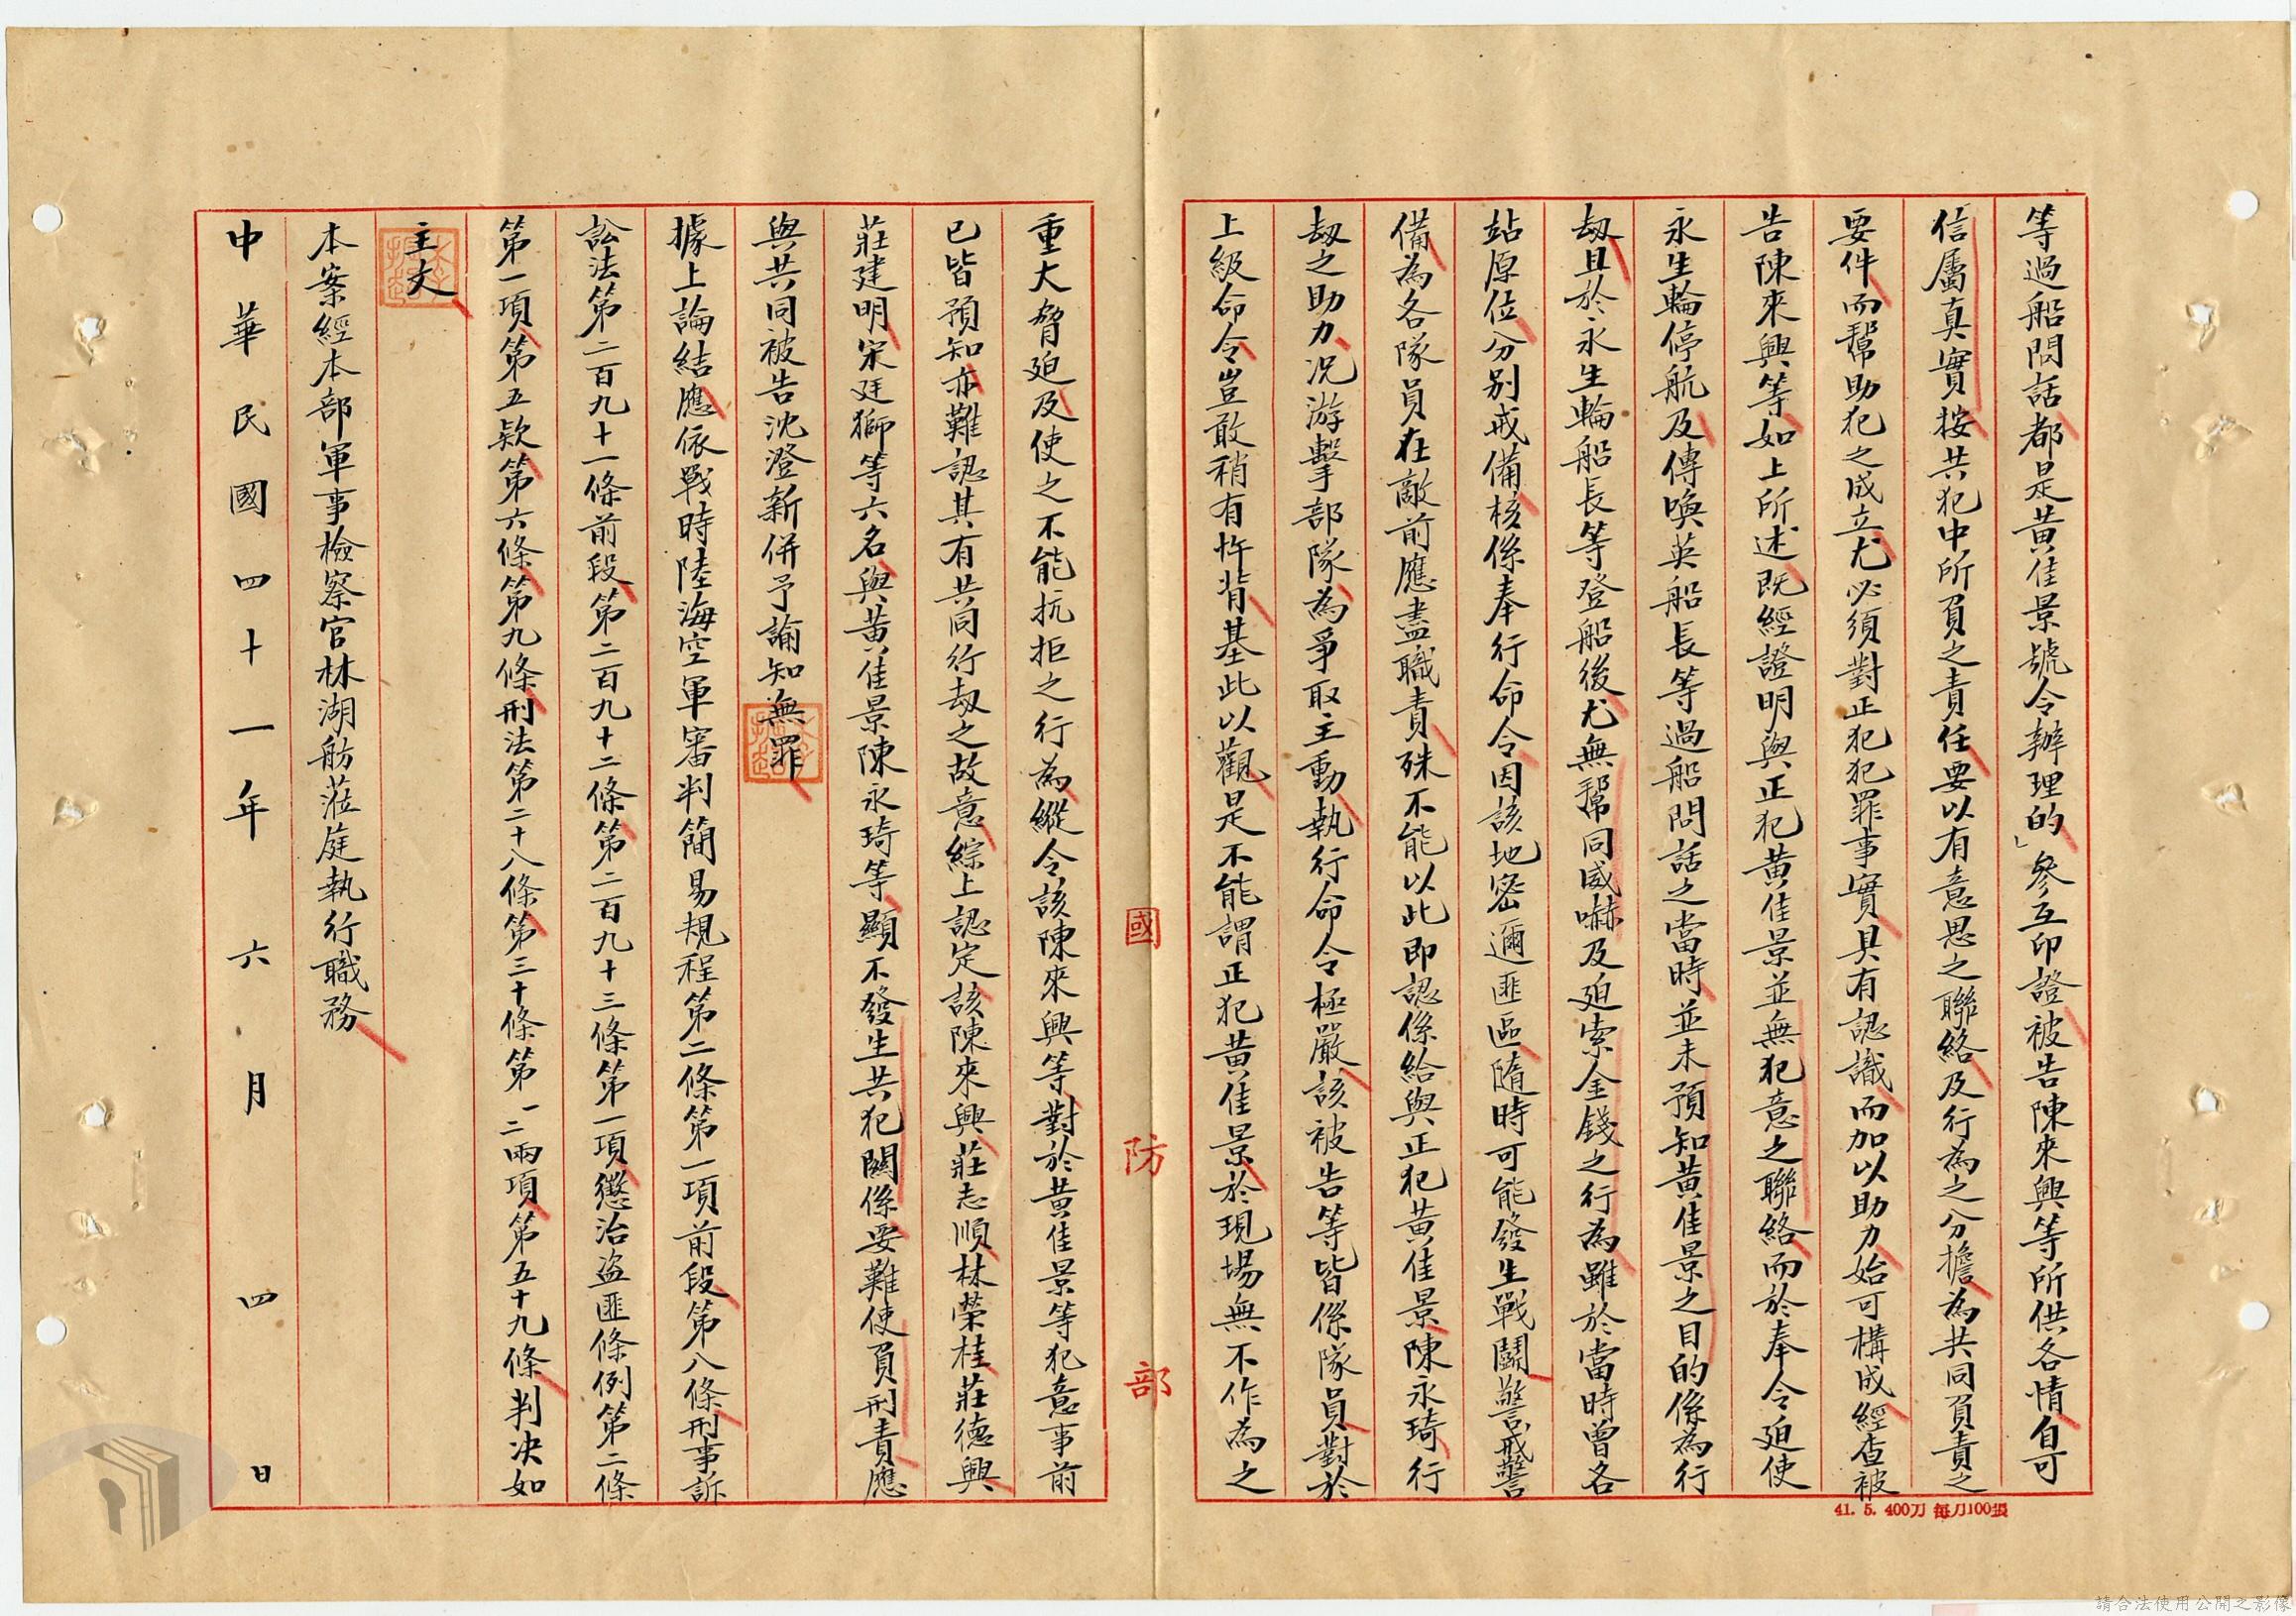 等過船問話都是黃佳景號令辦理的」參互印證被告陳來興等所供各情自可
信屬真實按共犯中所負之責任要以有意思之聯絡及行為之分擔為共同負責之
要件而幫助犯之成立尤必須對正犯犯罪事實具有認識而加以助力始可構成經查被
告陳來興等如上所述既經證明與正犯黃佳景並無犯意之聯絡而於奉令廹使
永生輪停航及傳喚英船長等過船問話之當時並未預知黃佳景之目的係為行
刼且於永生輪船長等登船後尤無幫同威嚇及廹索金錢之行為雖於當時曾各
站原位分別戒備核係奉行命令因該地密邇匪區隨時可能發生戰鬪警戒警
備為各隊員在敵前應盡職責殊不能以此即認係給與正犯黃佳景陳永琦行
刼之助力況游擊部隊為爭取主動執行命令極嚴該被告等皆係隊員對於
上級命令豈敢稍有忤背基此以觀是不能謂正犯黃佳景於現場無不作為之
國防部
重大脅廹及使之不能抗拒之行為縱令該陳來興等對於黃佳景等犯意事前
已皆預知亦難認其有共同行刼之故意綜上認定該陳來興莊志順林榮桂莊德興
莊建明宋廷獅等六名與黃佳景陳永琦等顯不發生共犯關係妥難使負刑責應
與共同被告沈澄新併予諭知無罪
據上論結應依戰時陸海空軍審判簡易規程第二條第一項前段第八條刑事訴
訟法第二百九十一條前段第二百九十二條第二百九十三條第一項懲治盜匪條例第二條
第一項第五款第六條第九條刑法第二十八條第三十條第一二兩項第五十九條判決如
主文
本案經本部軍事檢察官林湖舫蒞庭執行職務
中華民國四十一年六月四日
41. 5. 400刀 每刀100張
請合法使用公開之影像